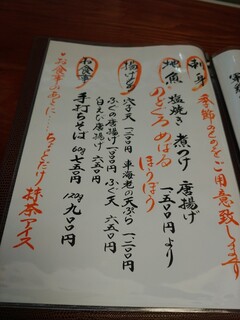 刺身 季節のものをご用意致します
焼魚 塩焼き 煮つけ 唐揚げ
のどぐろ めばる ほうぼう 一五〇〇円より
揚げ物 穴子天 一三〇〇円 車海老の天ぷら 一二〇〇円
ふぐの唐揚げ 一一〇〇円 ふぐ天 六五〇円
白えび唐揚げ 六五〇円
お食事 手打ちそば 60g 七五〇円 120g 九〇〇円
お食事のあとに…ちょとだけ 抹茶アイス